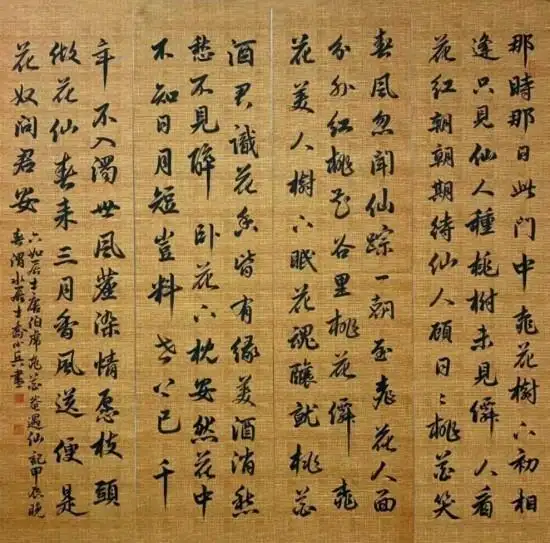 那時那日此門中桃花樹下初相
逢只見仙人種桃樹未見僊人看
花紅朝朝期待仙人顧日〻桃花笑
春風忽聞仙踪一朝至桃花人面
分外紅桃花谷里桃花僊桃
花美人樹下眠花魂釀就桃花
酒君識花香皆有緣美酒消愁
愁不見醉卧花下枕安然花中
不知日月短豈料世上已千
年不入濁世風塵染情愿枝頭
做花仙春来三月香風送便是
花奴问君安
六如居士唐伯虎桃花菴遇仙記甲辰晚
春渭水居士小兵書